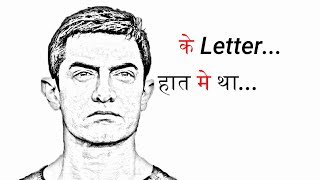 के Letter...
हात मे था...